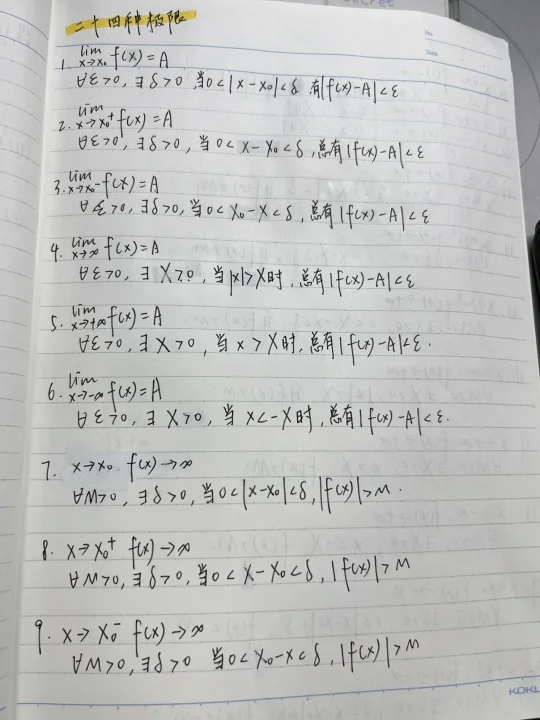 二十四种极限
1. lim x→x₀ f(x)=A
∀ε>0, ∃δ>0, 当0<|x-x₀|<δ 有|f(x)-A|<ε
2. lim x→x₀⁺ f(x)=A
∀ε>0, ∃δ>0, 当0<x-x₀<δ, 总有|f(x)-A|<ε
3. lim x→x₀⁻ f(x)=A
∀ε>0, ∃δ>0, 当0<x₀-x<δ, 总有|f(x)-A|<ε
4. lim x→∞ f(x)=A
∀ε>0, ∃X>0, 当|x|>X时, 总有|f(x)-A|<ε
5. lim x→+∞ f(x)=A
∀ε>0, ∃X>0, 当x>X时, 总有|f(x)-A|<ε.
6. lim x→-∞ f(x)=A
∀ε>0, ∃X>0, 当x<-X时, 总有|f(x)-A|<ε.
7. x→x₀ f(x)→∞
∀M>0, ∃δ>0, 当0<|x-x₀|<δ, |f(x)|>M.
8. x→x₀⁺ f(x)→∞
∀M>0, ∃δ>0, 当0<x-x₀<δ, |f(x)|>M
9. x→x₀⁻ f(x)→∞
∀M>0, ∃δ>0 当0<x₀-x<δ, |f(x)|>M